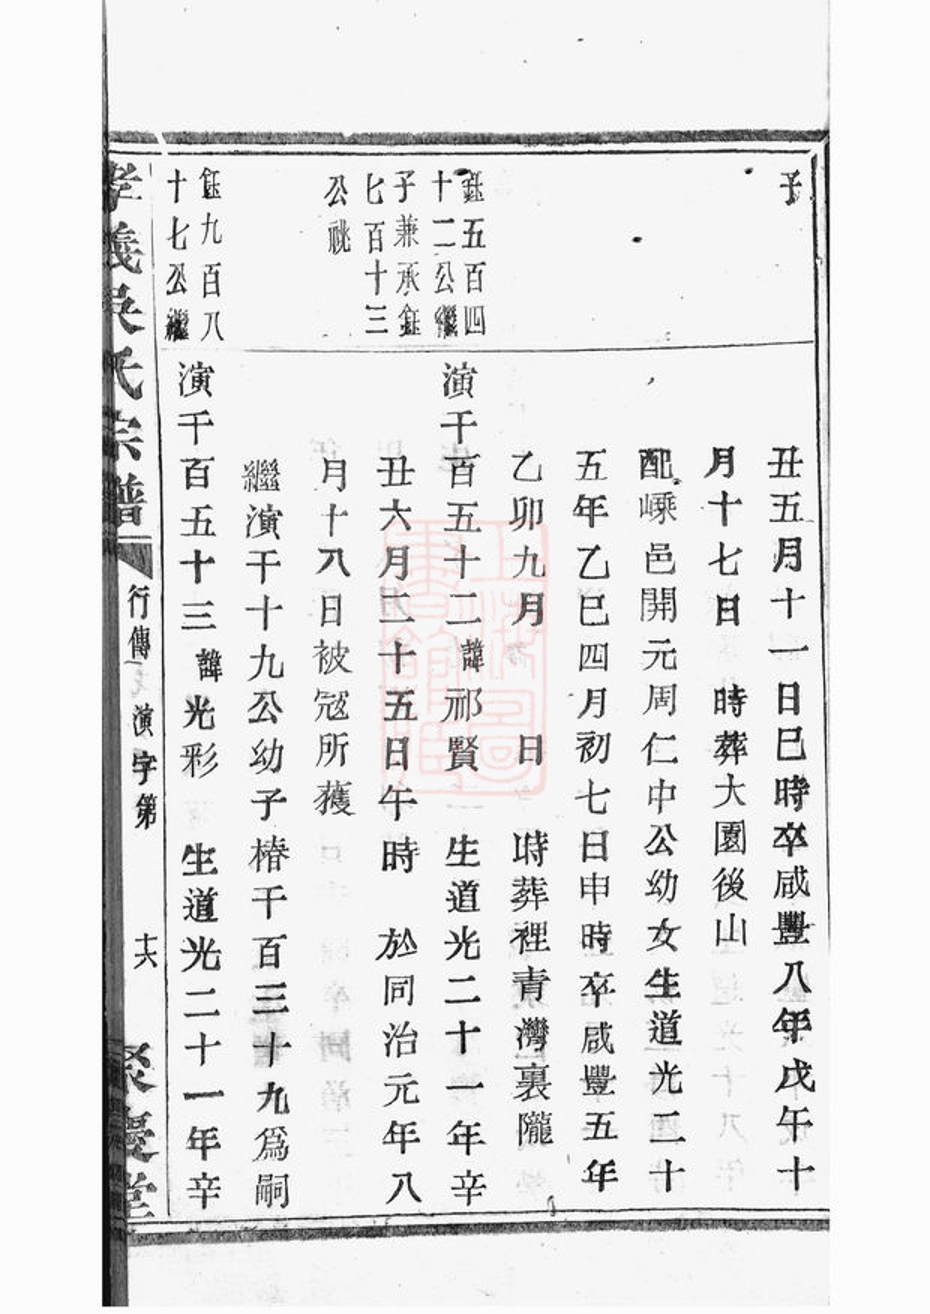 子
丑五月十一日巳時卒咸豐八年戊午十
月十七日　時葬大園後山
配嵊邑開元周仁中公幼女生道光二十
五年乙巳四月初七日申時卒咸豐五年
乙卯九月　日　時葬裡青灣裏隴
鈺五百四
十二公繼
子兼承鈺
七百十三
公祧
演干百五十二諱祁賢　生道光二十一年辛
丑六月二十五日午時　於同治元年八
月十八日被寇所獲
繼演干十九公幼子椿干百三十九爲嗣
鈺九百八
十七公繼
演千百五十三諱光彩　生道光二十一年辛
孝義吳氏宗譜
行傳
演字第
十六
聚慶堂
上海圖書館藏